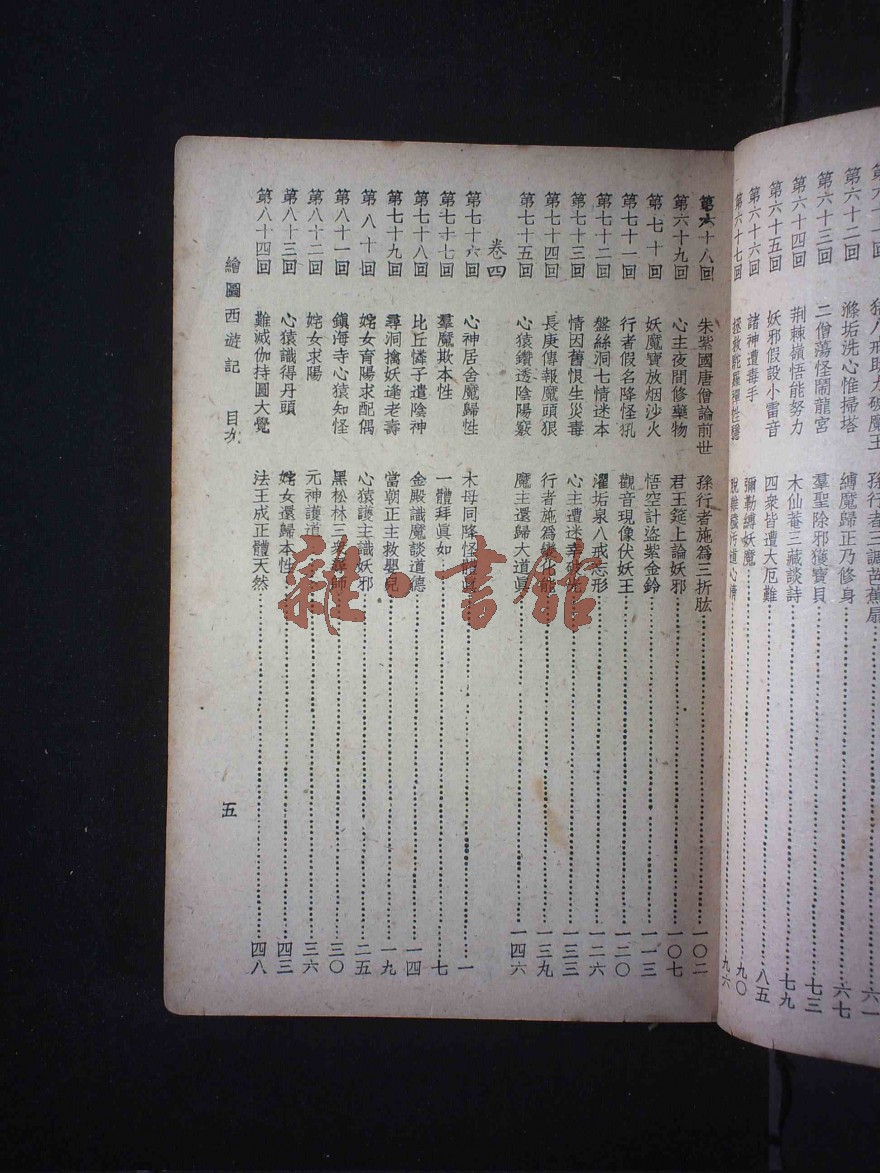 第六十二回 滌垢洗心惟掃塔 縛魔歸正乃修身 六七
第六十三回 二僧蕩怪鬧龍宮 羣聖除邪獲寶貝 七三
第六十四回 荆棘嶺悟能努力 木仙菴三藏談詩 七九
第六十五回 妖邪假設小雷音 四衆皆遭大厄難 八五
第六十六回 諸神遭毒手 彌勒縛妖魔 九〇
第六十七回 拯救駝羅禪性穩 脫離穢污道心清 九六
第六十八回 朱紫國唐僧論前世 孫行者施爲三折肱 一〇二
第六十九回 心主夜間修藥物 君王筵上論妖邪 一〇七
第七十回 妖魔寶放烟沙火 悟空計盜紫金鈴 一一三
第七十一回 行者假名降怪犼 觀音現像伏妖王 一二〇
第七十二回 盤絲洞七情迷本 濯垢泉八戒忘形 一二六
第七十三回 情因舊恨生災毒 心主遭迷幸破光 一三三
第七十四回 長庚傳報魔頭狠 行者施爲變化能 一三九
第七十五回 心猿鑽透陰陽竅 魔主還歸大道眞 一四六
卷四
第七十六回 心神居舍魔歸性 木母同降怪體眞 一
第七十七回 羣魔欺本性 一體拜眞如 七
第七十八回 比丘憐子遣陰神 金殿識魔談道德 一四
第七十九回 尋洞擒妖逢老壽 當朝正主救嬰兒 一九
第八十回 姹女育陽求配偶 心猿護主識妖邪 二五
第八十一回 鎭海寺心猿知怪 黑松林三衆尋師 三〇
第八十二回 姹女求陽 元神護道 三六
第八十三回 心猿識得丹頭 姹女還歸本性 四三
第八十四回 難滅伽持圓大覺 法王成正體天然 四八
繪圖西遊記 目次 五
雜·書館